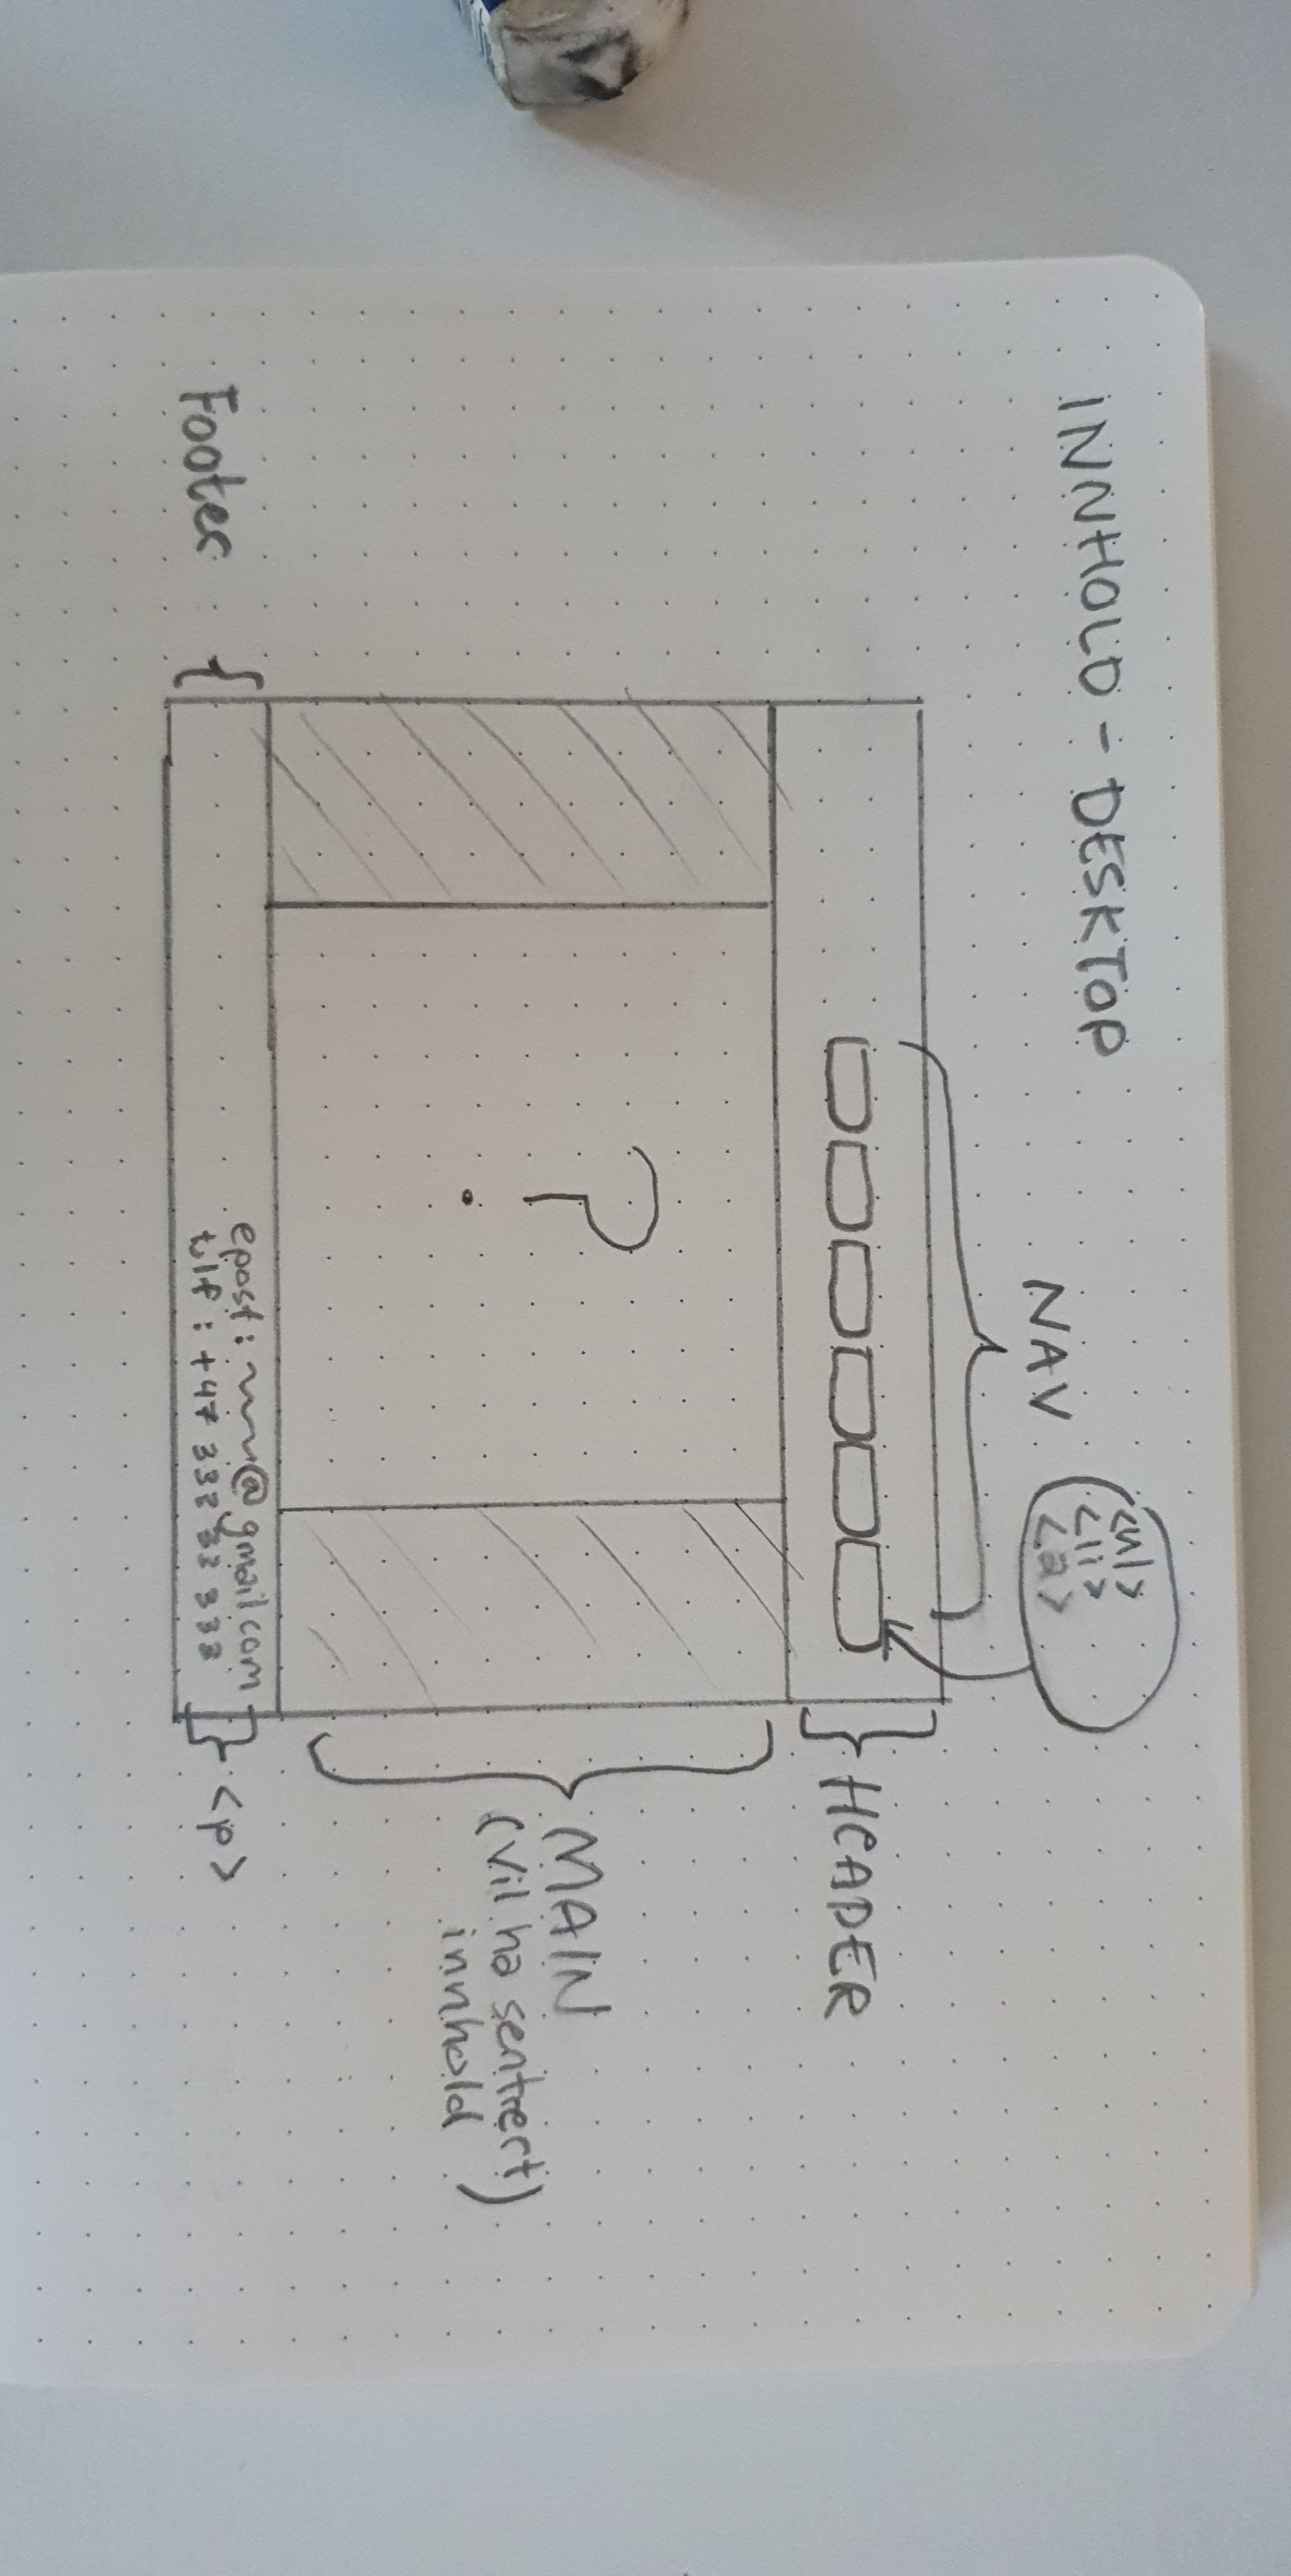 INNHOLD - DESKTOP
NAV
<ul>
<li>
<a>
HEADER
?
MAIN
(vil ha sentrert)
innhold
Footer
epost: @gmail.com
tlf: +47 332 32 333
<p>